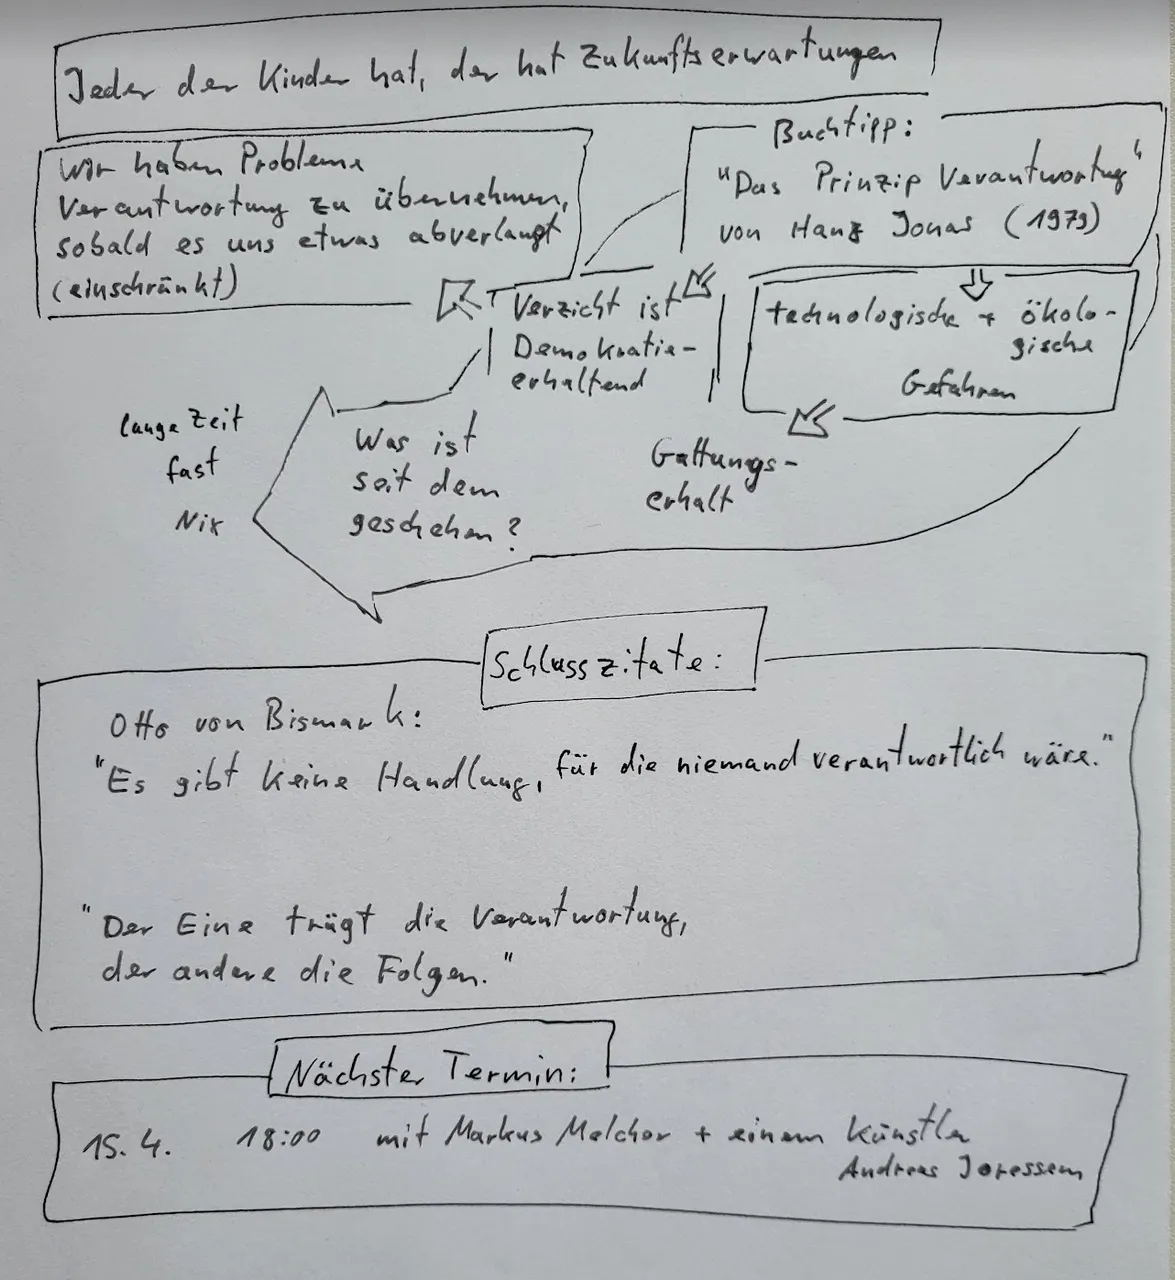 Jeder der Kinder hat, der hat Zukunftserwartungen
Wir haben Probleme
Verantwortung zu übernehmen,
sobald es uns etwas abverlangt
(einschränkt)
Buchtipp:
"Das Prinzip Verantwortung"
von Hanz Jonas (1979)
Verzicht ist
Demokratie-
erhaltend
technologische + ökolo-
gische
Gefahren
lange Zeit
fast
Nix
Was ist
seit dem
geschehen?
Gattungs-
erhalt
Schlusszitate:
Otto von Bismark:
"Es gibt keine Handlung, für die niemand verantwortlich wäre."
"Der Eine trägt die Verantwortung,
der andere die Folgen."
Nächster Termin:
15.4. 18:00 mit Markus Melchor + einem Künstler
Andreas Joressem